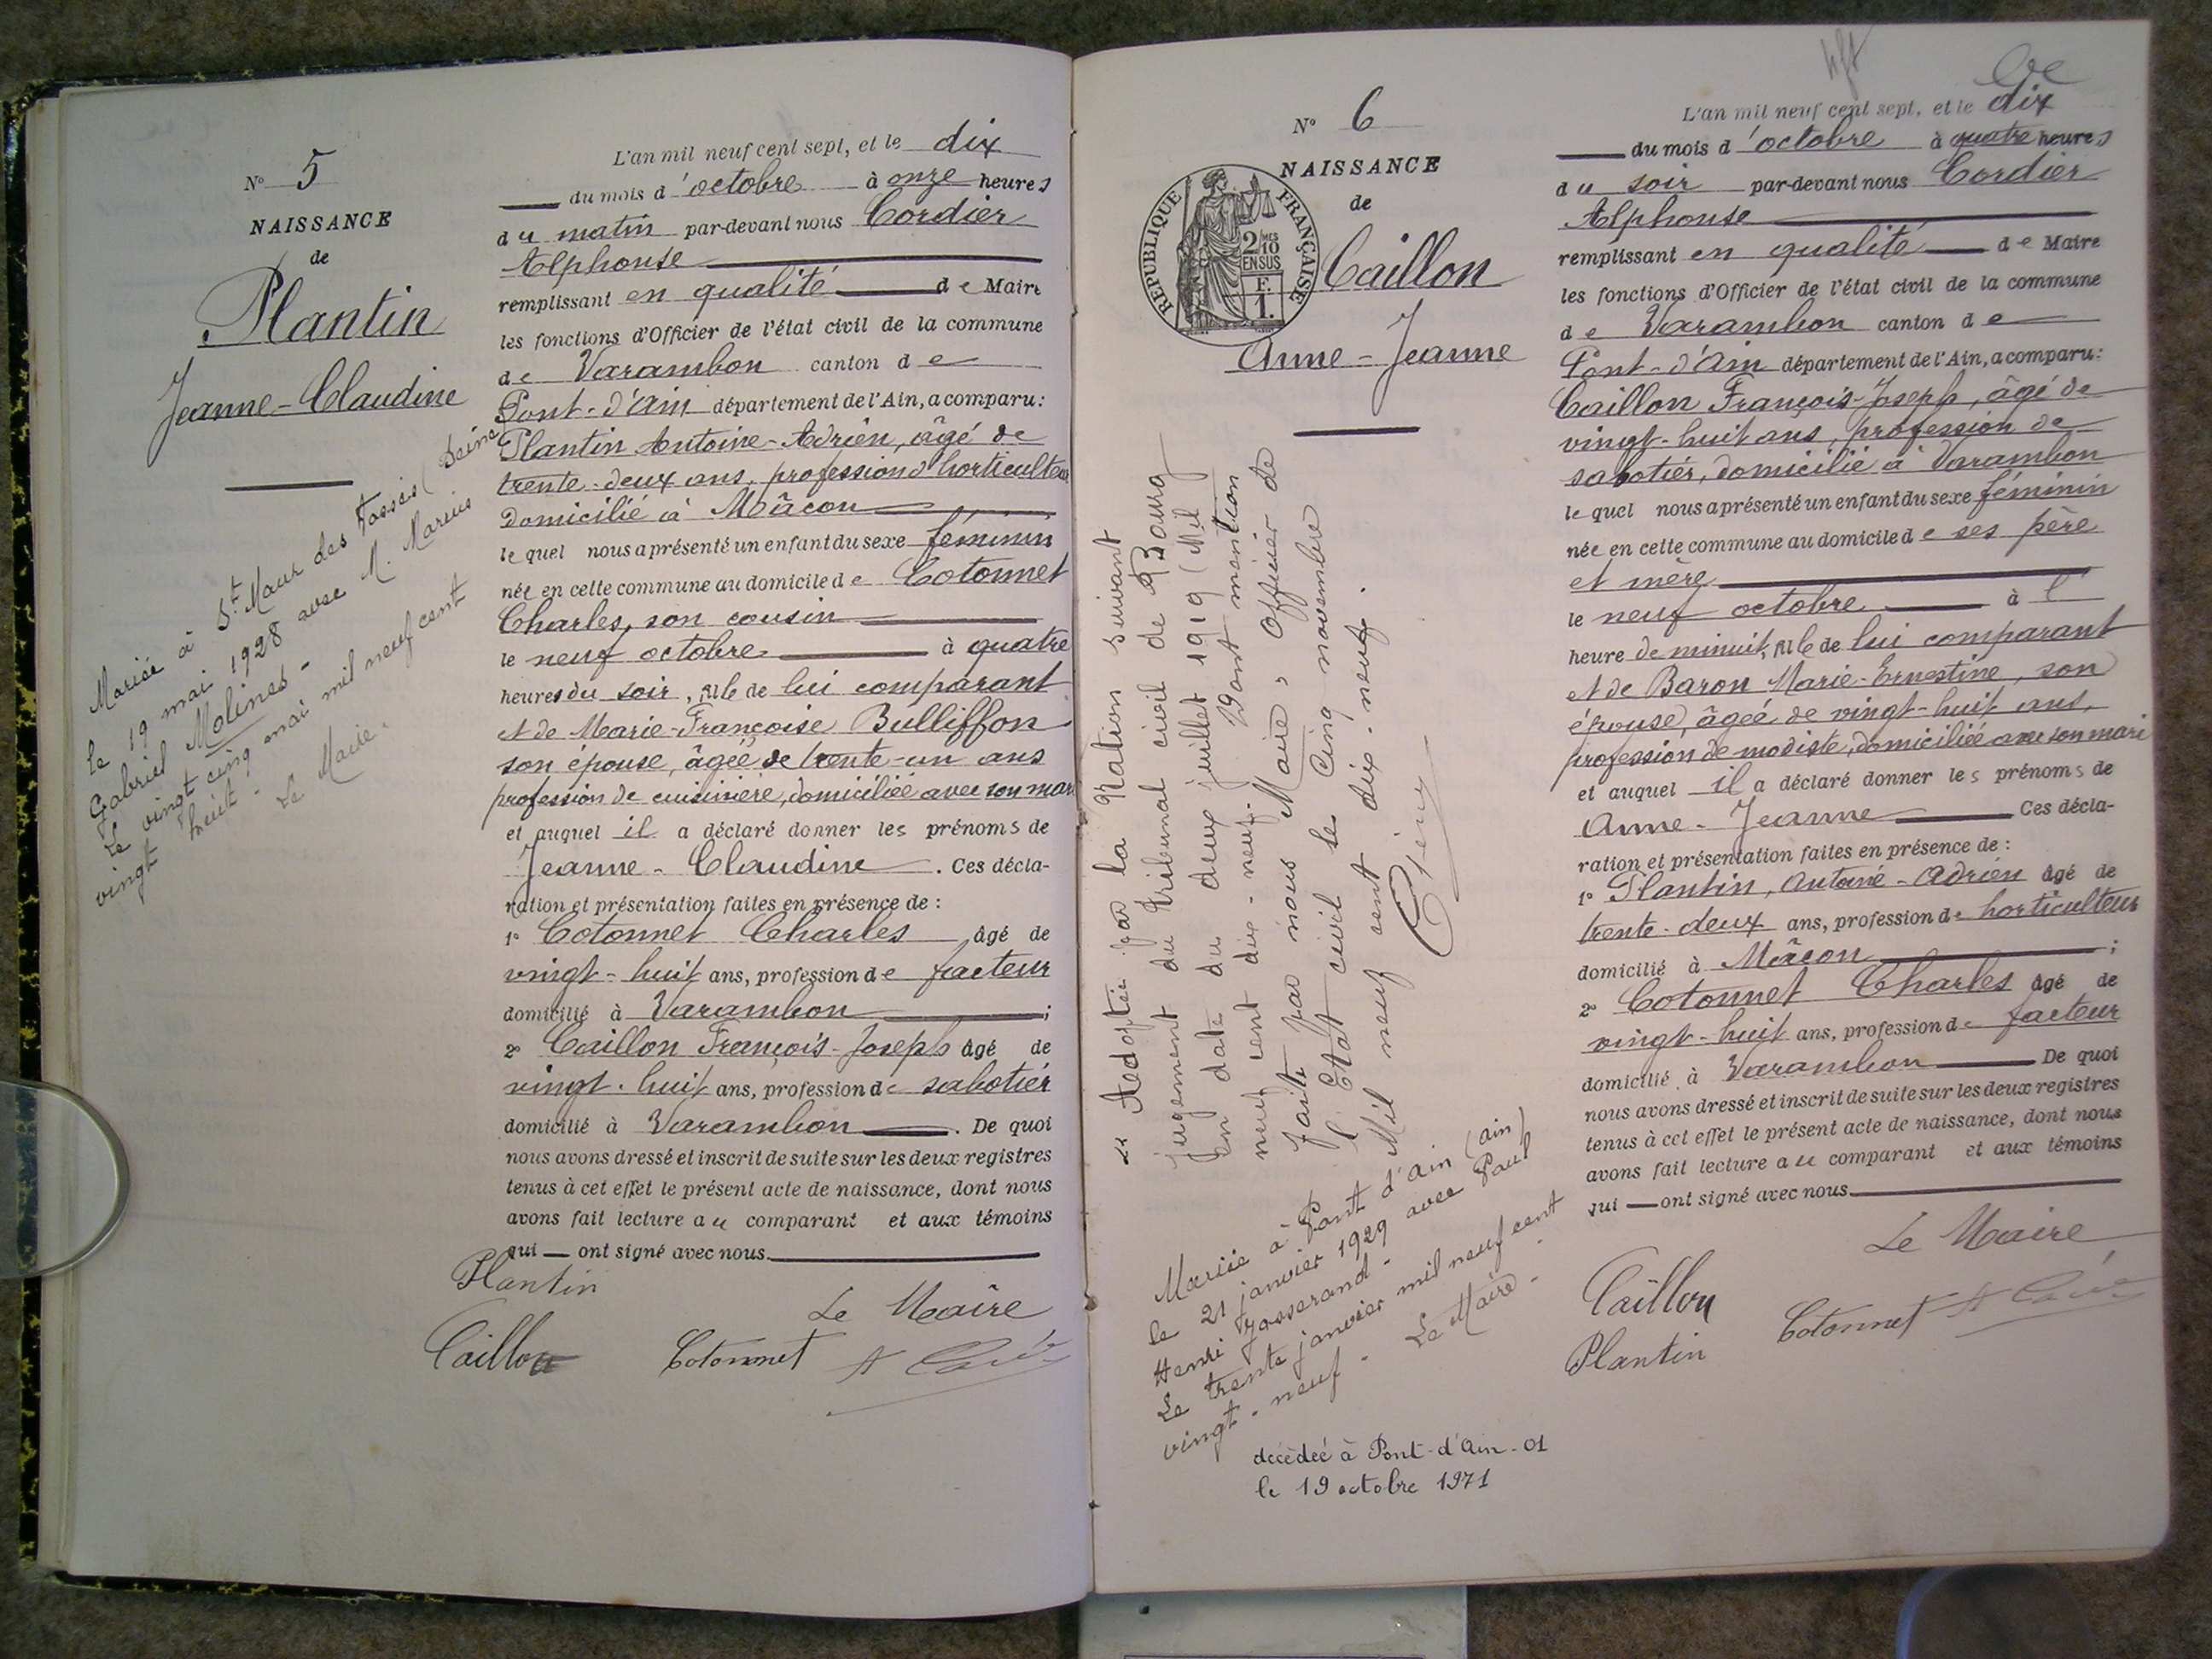 N° 5
NAISSANCE
de
Plantin
Jeanne-Claudine
Mariée à St Maur des Fossés (Seine
le 19 mai 1928 avec M. Marius
Gabriel Molines -
Le vingt cinq mai mil neuf cent
vingt huit -
Le Maire.
L'an mil neuf cent sept, et le dix
du mois d'octobre à onze heures
du matin par-devant nous Cordier
Alphonse
remplissant en qualité de Maire
les fonctions d'Officier de l'état civil de la commune
de Varambon canton de
Pont-d'Ain département de l'Ain, a comparu:
Plantin Antoine-Adrien, âgé de
trente-deux ans, profession d'horticulteur
domicilié à Mâcon
lequel nous a présenté un enfant du sexe féminin
née en cette commune au domicile de Cotonnet
Charles, son cousin
le neuf octobre à quatre
heures du soir, fille de lui comparant
et de Marie-Françoise Bulliffon
son épouse, âgée de trente-un ans
profession de cuisinière, domiciliée avec son mari
et auquel il a déclaré donner les prénoms de
Jeanne-Claudine. Ces décla-
ration et présentation faites en présence de :
1° Cotonnet Charles âgé de
vingt-huit ans, profession de facteur
domicilié à Varambon ;
2° Caillon François-Joseph âgé de
vingt-huit ans, profession de sabotier
domicilié à Varambon. De quoi
nous avons dressé et inscrit de suite sur les deux registres
tenus à cet effet le présent acte de naissance, dont nous
avons fait lecture au comparant et aux témoins
qui ont signé avec nous.
Plantin
Le Maire
Caillon Cotonnet A
N° 6
NAISSANCE
de
RÉPUBLIQUE FRANÇAISE
2/10 MES
EN SUS
F.
1.
Caillon
Anne-Jeanne
Adoptée par la Nation suivant
jugement du tribunal civil de Bourg
en date du deux juillet 1919 (Mil
neuf cent dix-neuf). Dont mention
faite par nous Maire, Officier de
l'Etat civil le Cinq novembre
Mil neuf cent dix-neuf.
Mariée à Pont d'Ain (Ain)
le 21 janvier 1929 avec Paul
Henri Josserand -
Le trente janvier mil neuf cent
vingt-neuf -
Le Maire -
décédée à Pont-d'Ain-01
le 19 octobre 1971
L'an mil neuf cent sept, et le dix
du mois d'octobre à quatre heures
du soir par-devant nous Cordier
Alphonse
remplissant en qualité de Maire
les fonctions d'Officier de l'état civil de la commune
de Varambon canton de
Pont-d'Ain département de l'Ain, a comparu:
Caillon François-Joseph, âgé de
vingt-huit ans, profession de
sabotier, domicilié à Varambon
lequel nous a présenté un enfant du sexe féminin
née en cette commune au domicile de ses père
et mère
le neuf octobre à l'
heure de minuit, fille de lui comparant
et de Baron Marie-Ernestine, son
épouse, âgée de vingt-huit ans,
profession de modiste, domiciliée avec son mari
et auquel il a déclaré donner les prénoms de
Anne-Jeanne Ces décla-
ration et présentation faites en présence de :
1° Plantin, Antoine-Adrien âgé de
trente-deux ans, profession d'horticulteur
domicilié à Mâcon ;
2° Cotonnet Charles âgé de
vingt-huit ans, profession de facteur
domicilié à Varambon De quoi
nous avons dressé et inscrit de suite sur les deux registres
tenus à cet effet le présent acte de naissance, dont nous
avons fait lecture au comparant et aux témoins
qui ont signé avec nous.
Le Maire
Caillon Cotonnet A
Plantin